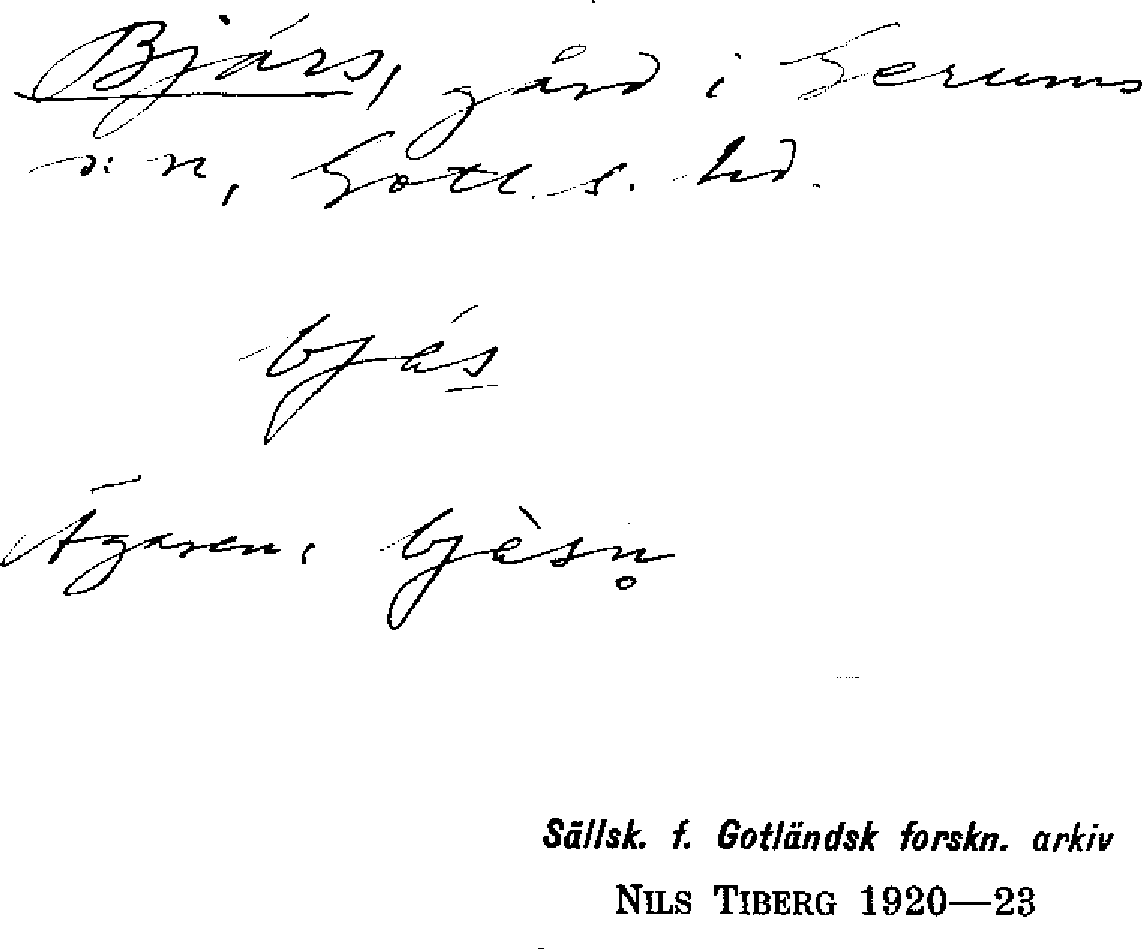 Bjärs, gård i Gerums
s:n, Gotl. s. hd.
bjás
Ägaren: bjàsn̥
Sällsk. f. Gotländsk forskn. arkiv
NILS TIBERG 1920—23